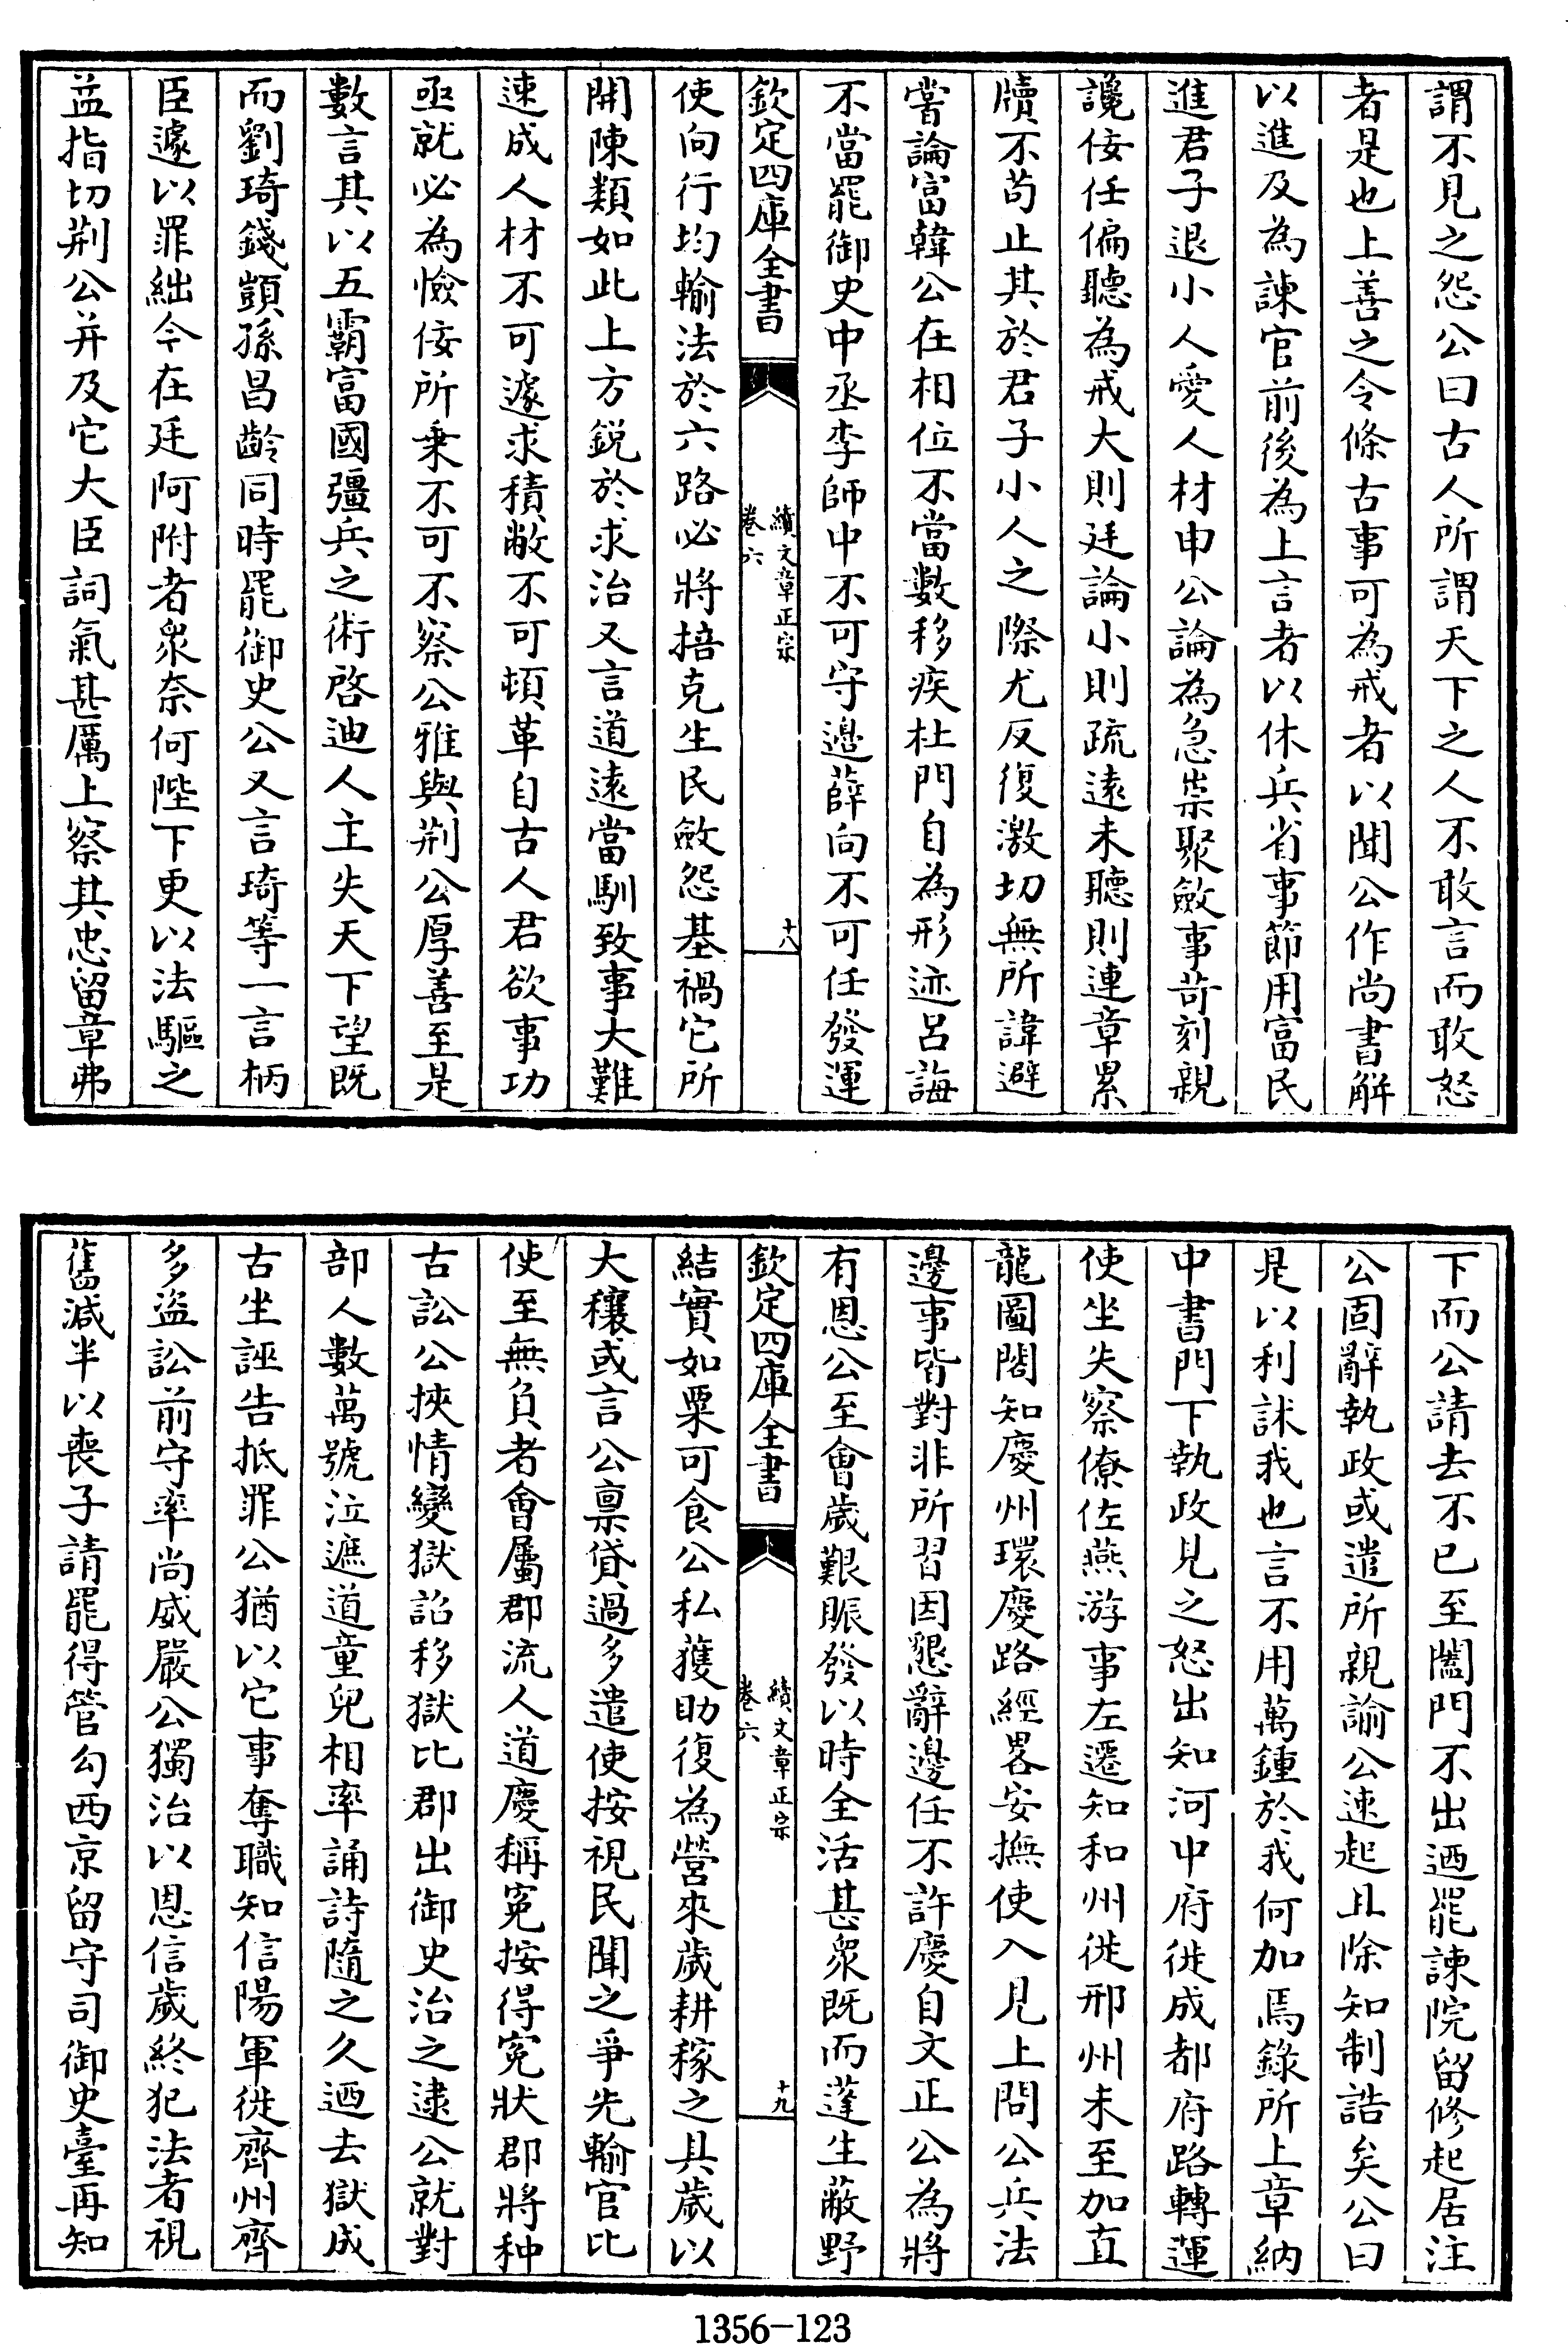 謂不見之怨公曰古人所謂天下之人不敢言而敢怒
者是也上善之令條古事可為戒者以聞公作尚書解
以進及為諫官前後為上言者以休兵省事節用富民
進君子退小人愛人材申公論為急崇聚斂事苛刻親
讒佞任偏聽為戒大則廷論小則疏逺未聽則連章累
牘不茍止其於君子小人之際尤反復激切無所諱避
嘗論富韓公在相位不當數移疾杜門自為形迹呂誨
不當罷御史中丞李師中不可守邉薛向不可任發運
欽定四庫全書
續文章正宗
卷六
十八
使向行均輸法於六路必將掊克生民斂怨基禍它所
開陳類如此上方銳於求治又言道逺當馴致事大難
速成人材不可遽求積敝不可頓革自古人君欲事功
亟就必為憸佞所乗不可不察公雅與荆公厚善至是
數言其以五霸富國彊兵之術啓迪人主失天下望既
而劉琦錢顗孫昌齡同時罷御史公又言琦等一言柄
臣遽以罪絀今在廷阿附者衆奈何陛下更以法驅之
益指切荆公并及它大臣詞氣甚厲上察其忠留章弗
下而公請去不已至闔門不出迺罷諫院留修起居注
公固辭執政或遣所親諭公速起且除知制誥矣公曰
是以利訹我也言不用萬鍾於我何加焉錄所上章納
中書門下執政見之怒出知河中府徙成都府路轉運
使坐失察僚佐燕游事左遷知和州徙邢州未至加直
龍圖閣知慶州環慶路經畧安撫使入見上問公兵法
邊事皆對非所習因懇辭邊任不許慶自文正公為將
有恩公至會歲艱賑發以時全活甚衆既而蓬生蔽野
欽定四庫全書
續文章正宗
卷六
十九
結實如粟可食公私獲助復為營來歲耕稼之具歲以
大穰或言公禀貸過多遣使按視民聞之爭先輸官比
使至無負者會屬郡流人道慶稱寃按得寃狀郡將种
古訟公挾情變獄詔移獄比郡出御史治之逮公就對
部人數萬號泣遮道童兒相率誦詩隨之久迺去獄成
古坐誣告抵罪公猶以它事奪職知信陽軍徙齊州齊
多盜訟前守率尚威嚴公獨治以恩信歲終犯法者視
舊減半以喪子請罷得管勾西京留守司御史臺再知
1356-123